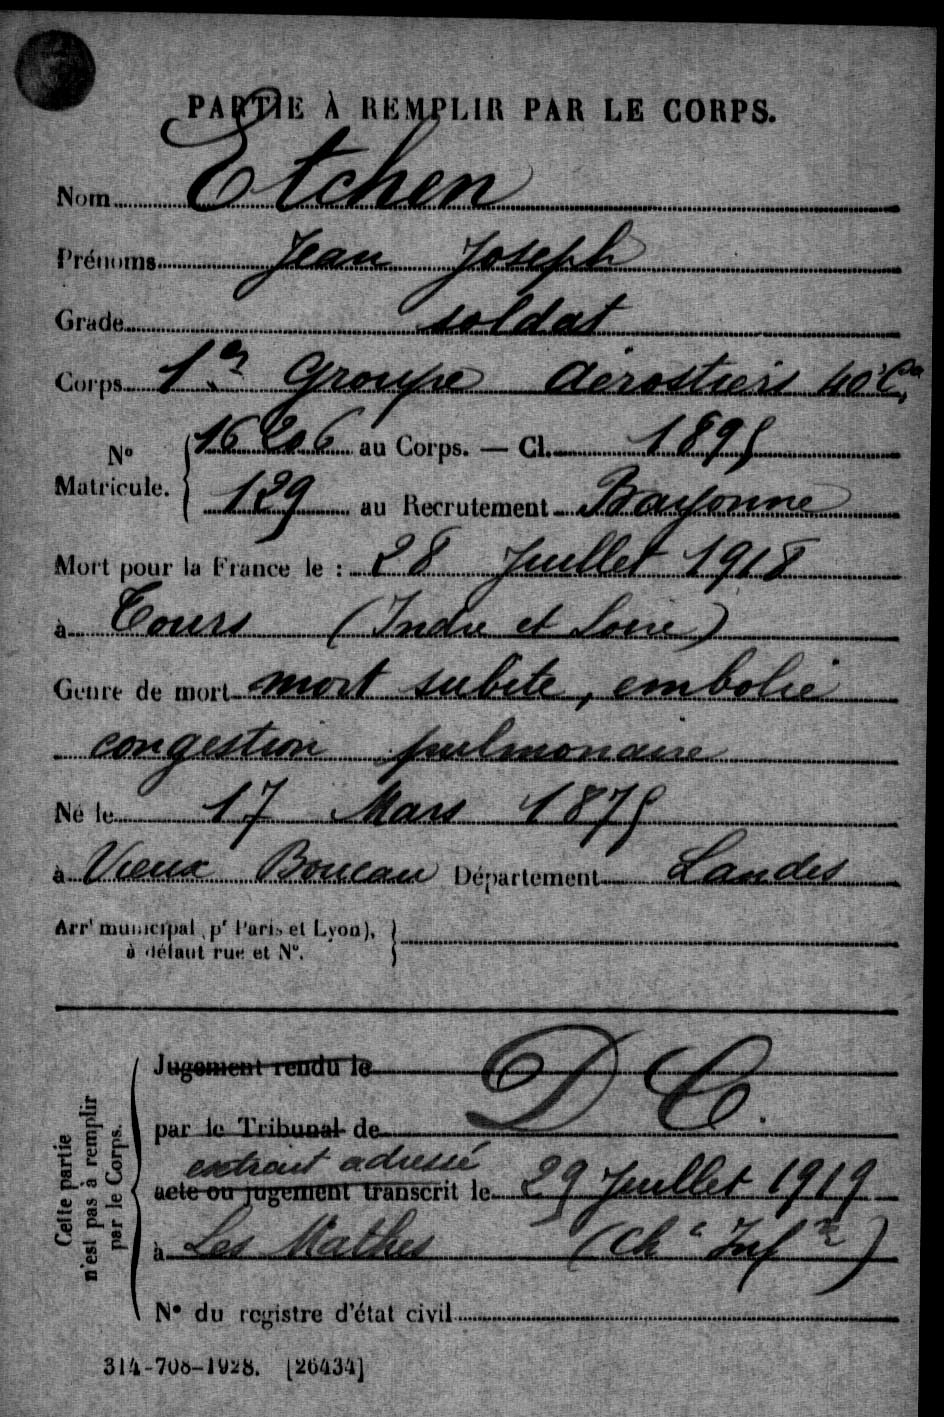 PARTIE À REMPLIR PAR LE CORPS.
Nom Etchen
Prénoms Jean Joseph
Grade soldat
Corps 1er Groupe Aérostiers 40e Cie
No Matricule. 16206 au Corps. — Cl. 1895
129 au Recrutement Bayonne
Mort pour la France le : 28 Juillet 1918
à Tours (Indre et Loire)
Genre de mort mort subite, embolie
congestion pulmonaire
Né le 17 Mars 1875
à Vieux Boucau Département Landes
Arrt municipal (pr Paris et Lyon),
à défaut rue et No.
Cette partie n'est pas à remplir par le Corps.
Jugement rendu le D C.
par le Tribunal de
extrait adressé
acte ou jugement transcrit le 29 Juillet 1919
à Les Mathes (Chte Infre)
No du registre d'état civil
314-708-1928. [26434]